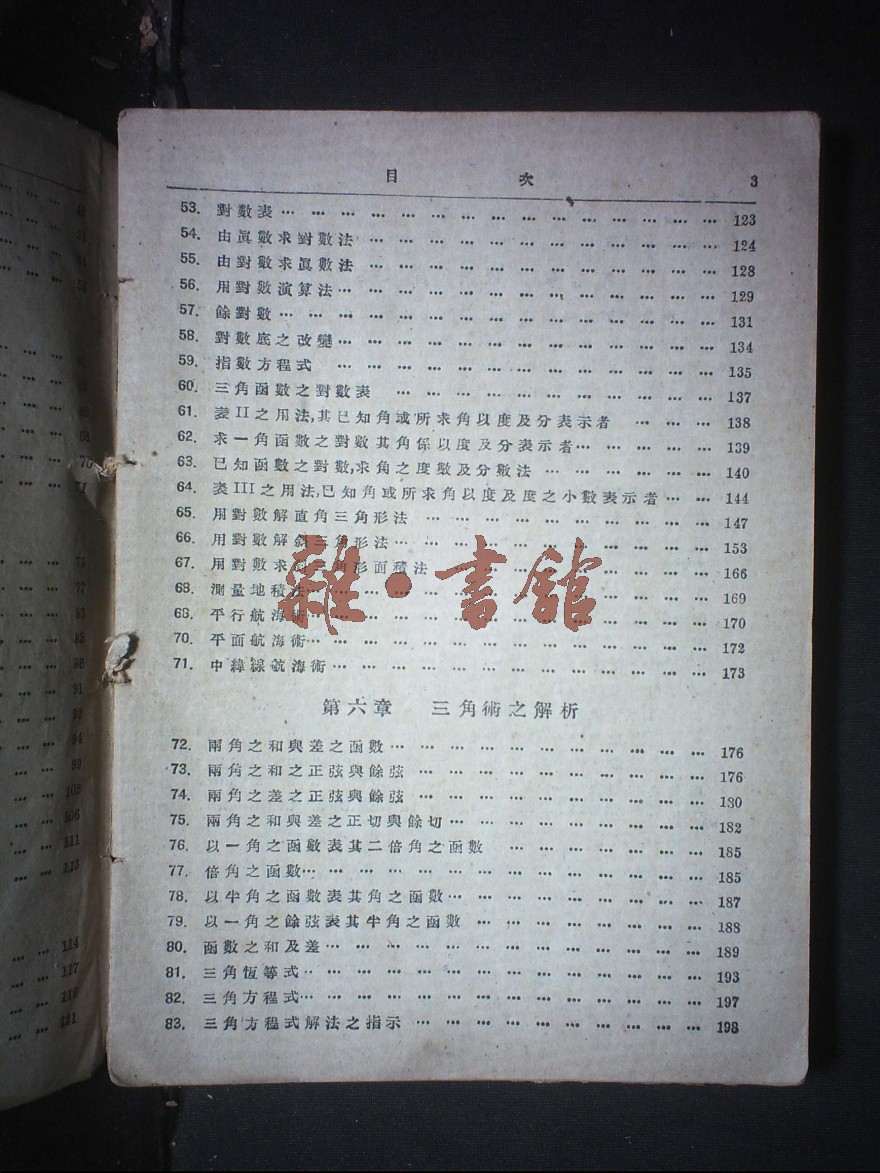 目 次 3
53. 對數表 … … … … … … … … … … … … … … … 123
54. 由眞數求對數法 … … … … … … … … … … … … 124
55. 由對數求眞數法 … … … … … … … … … … … … 128
56. 用對數演算法 … … … … … … … … … … … … … 129
57. 餘對數 … … … … … … … … … … … … … … 131
58. 對數底之改變 … … … … … … … … … … … … … 134
59. 指數方程式 … … … … … … … … … … … … … 135
60. 三角函數之對數表 … … … … … … … … … … … 137
61. 表II之用法,其已知角或所求角以度及分表示者 … … … 138
62. 求一角函數之對數其角係以度及分表示者 … … … … … 139
63. 已知函數之對數,求角之度數及分數法 … … … … … … 140
64. 表III之用法,已知角或所求角以度及度之小數表示者 … … 144
65. 用對數解直角三角形法 … … … … … … … … … … 147
66. 用對數解斜三角形法 … … … … … … … … … … … 153
67. 用對數求斜三角形面積法 … … … … … … … … … 166
68. 測量地積法 … … … … … … … … … … … … … … 169
69. 平行航海術 … … … … … … … … … … … … … … 170
70. 平面航海術 … … … … … … … … … … … … … … 172
71. 中緯線航海術 … … … … … … … … … … … … … 173
第六章 三角術之解析
72. 兩角之和與差之函數 … … … … … … … … … … … 176
73. 兩角之和之正弦與餘弦 … … … … … … … … … … 176
74. 兩角之差之正弦與餘弦 … … … … … … … … … … 180
75. 兩角之和與差之正切與餘切 … … … … … … … … … 182
76. 以一角之函數表其二倍角之函數 … … … … … … … 185
77. 倍角之函數 … … … … … … … … … … … … … … 185
78. 以半角之函數表其角之函數 … … … … … … … … … 187
79. 以一角之餘弦表其半角之函數 … … … … … … … … 188
80. 函數之和及差 … … … … … … … … … … … … … 189
81. 三角恆等式 … … … … … … … … … … … … … … 193
82. 三角方程式 … … … … … … … … … … … … … … 197
83. 三角方程式解法之指示 … … … … … … … … … … 198
雜·書館